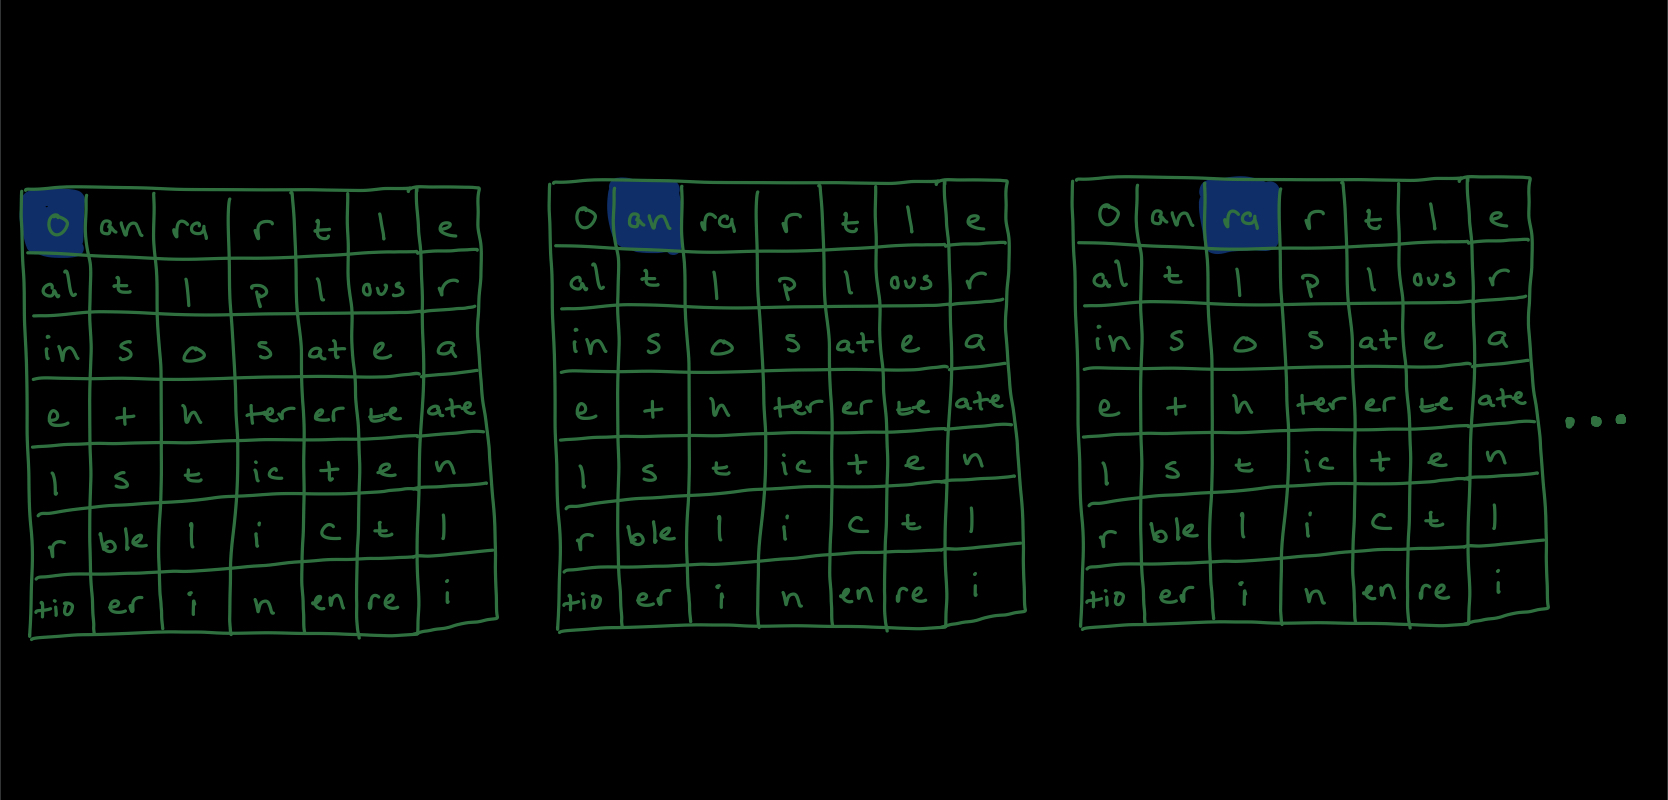 o an ra r t l e
al t l p l ous r
in s o s at e a
e t h ter er te ate
l s t ic t e n
r ble l i c t l
tio er i n en re i
o an ra r t l e
al t l p l ous r
in s o s at e a
e t h ter er te ate
l s t ic t e n
r ble l i c t l
tio er i n en re i
o an ra r t l e
al t l p l ous r
in s o s at e a
e t h ter er te ate
l s t ic t e n
r ble l i c t l
tio er i n en re i
...